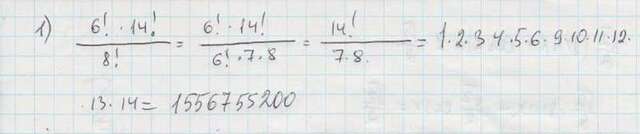 1) 6! · 14! / 8! = 6! · 14! / 6! · 7 · 8 = 14! / 7 · 8 = 1 · 2 · 3 4 · 5 · 6 · 9 · 10 · 11 · 12 ·
· 13 · 14 = 1556755200